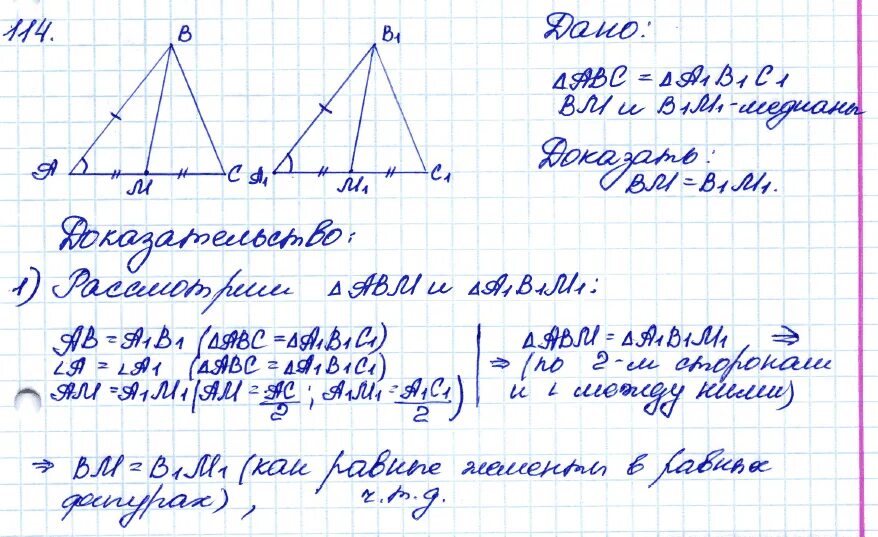 114.
B
B₁
A
M
C
A₁
M₁
C₁
Дано:
△ABC = △A₁B₁C₁
BM и B₁M₁-медианы
Доказать:
BM = B₁M₁.
Доказательство:
1) Рассмотрим △ABM и △A₁B₁M₁:
AB = A₁B₁ (△ABC = △A₁B₁C₁)
∠A = ∠A₁ (△ABC = △A₁B₁C₁)
AM = A₁M₁ (AM = AC/2 ; A₁M₁ = A₁C₁/2)
△ABM = △A₁B₁M₁ ⇒
⇒ (по 2-м сторонам
и ∠ между ними)
⇒ BM = B₁M₁ (как равные элементы в равных
фигурах), ч.т.д.